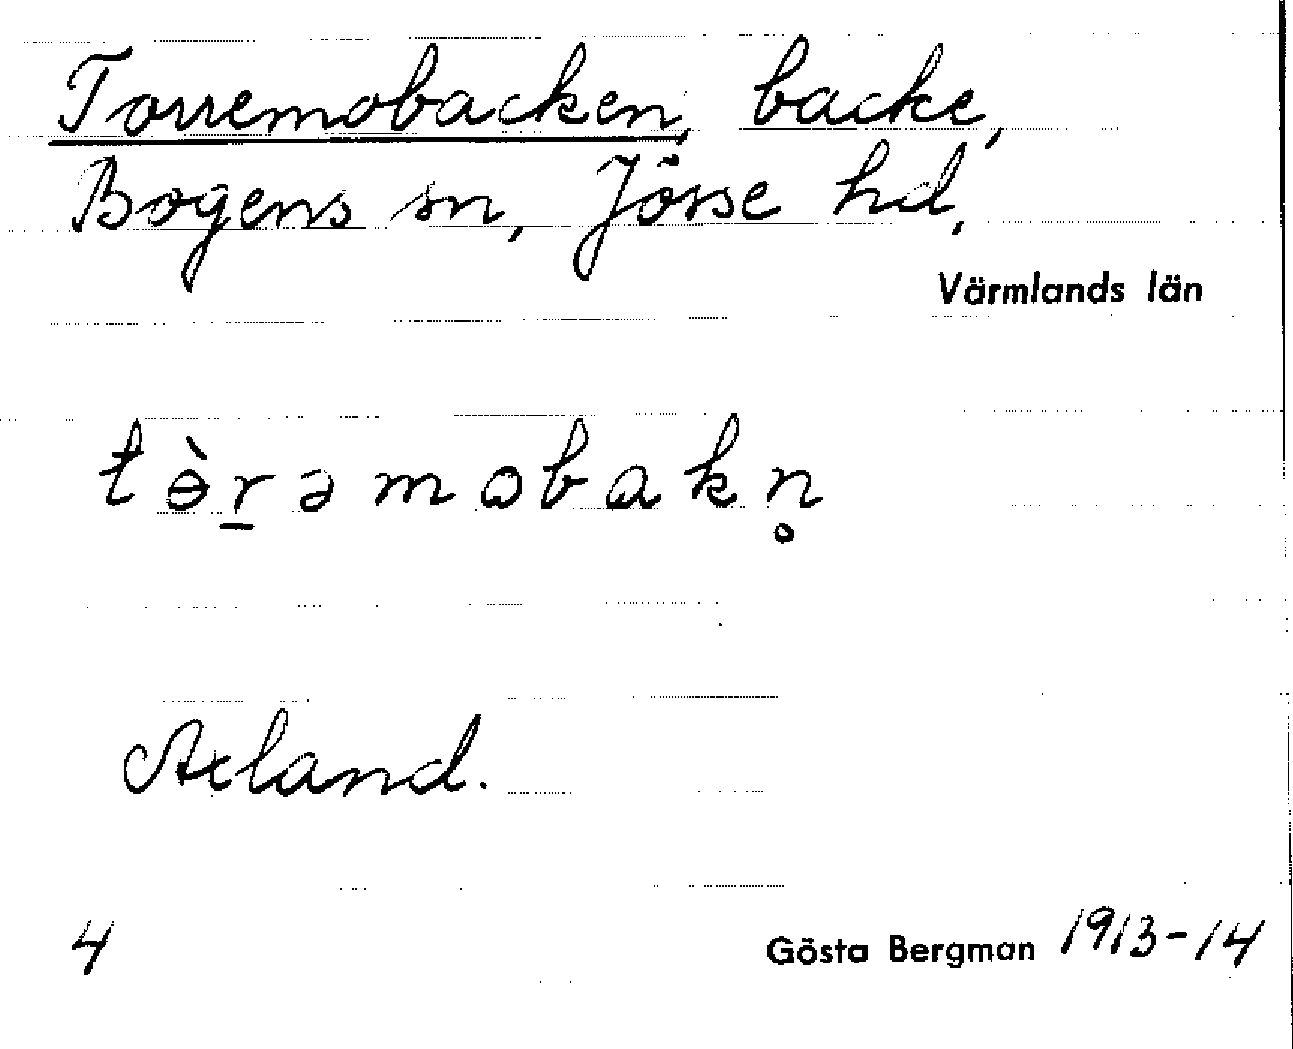 Torremobacken, backe,
Bogens sn, Jösse hd,
Värmlands län
tɵ̀r̠əmobakn̥
Axland.
4 Gösta Bergman 1913-14